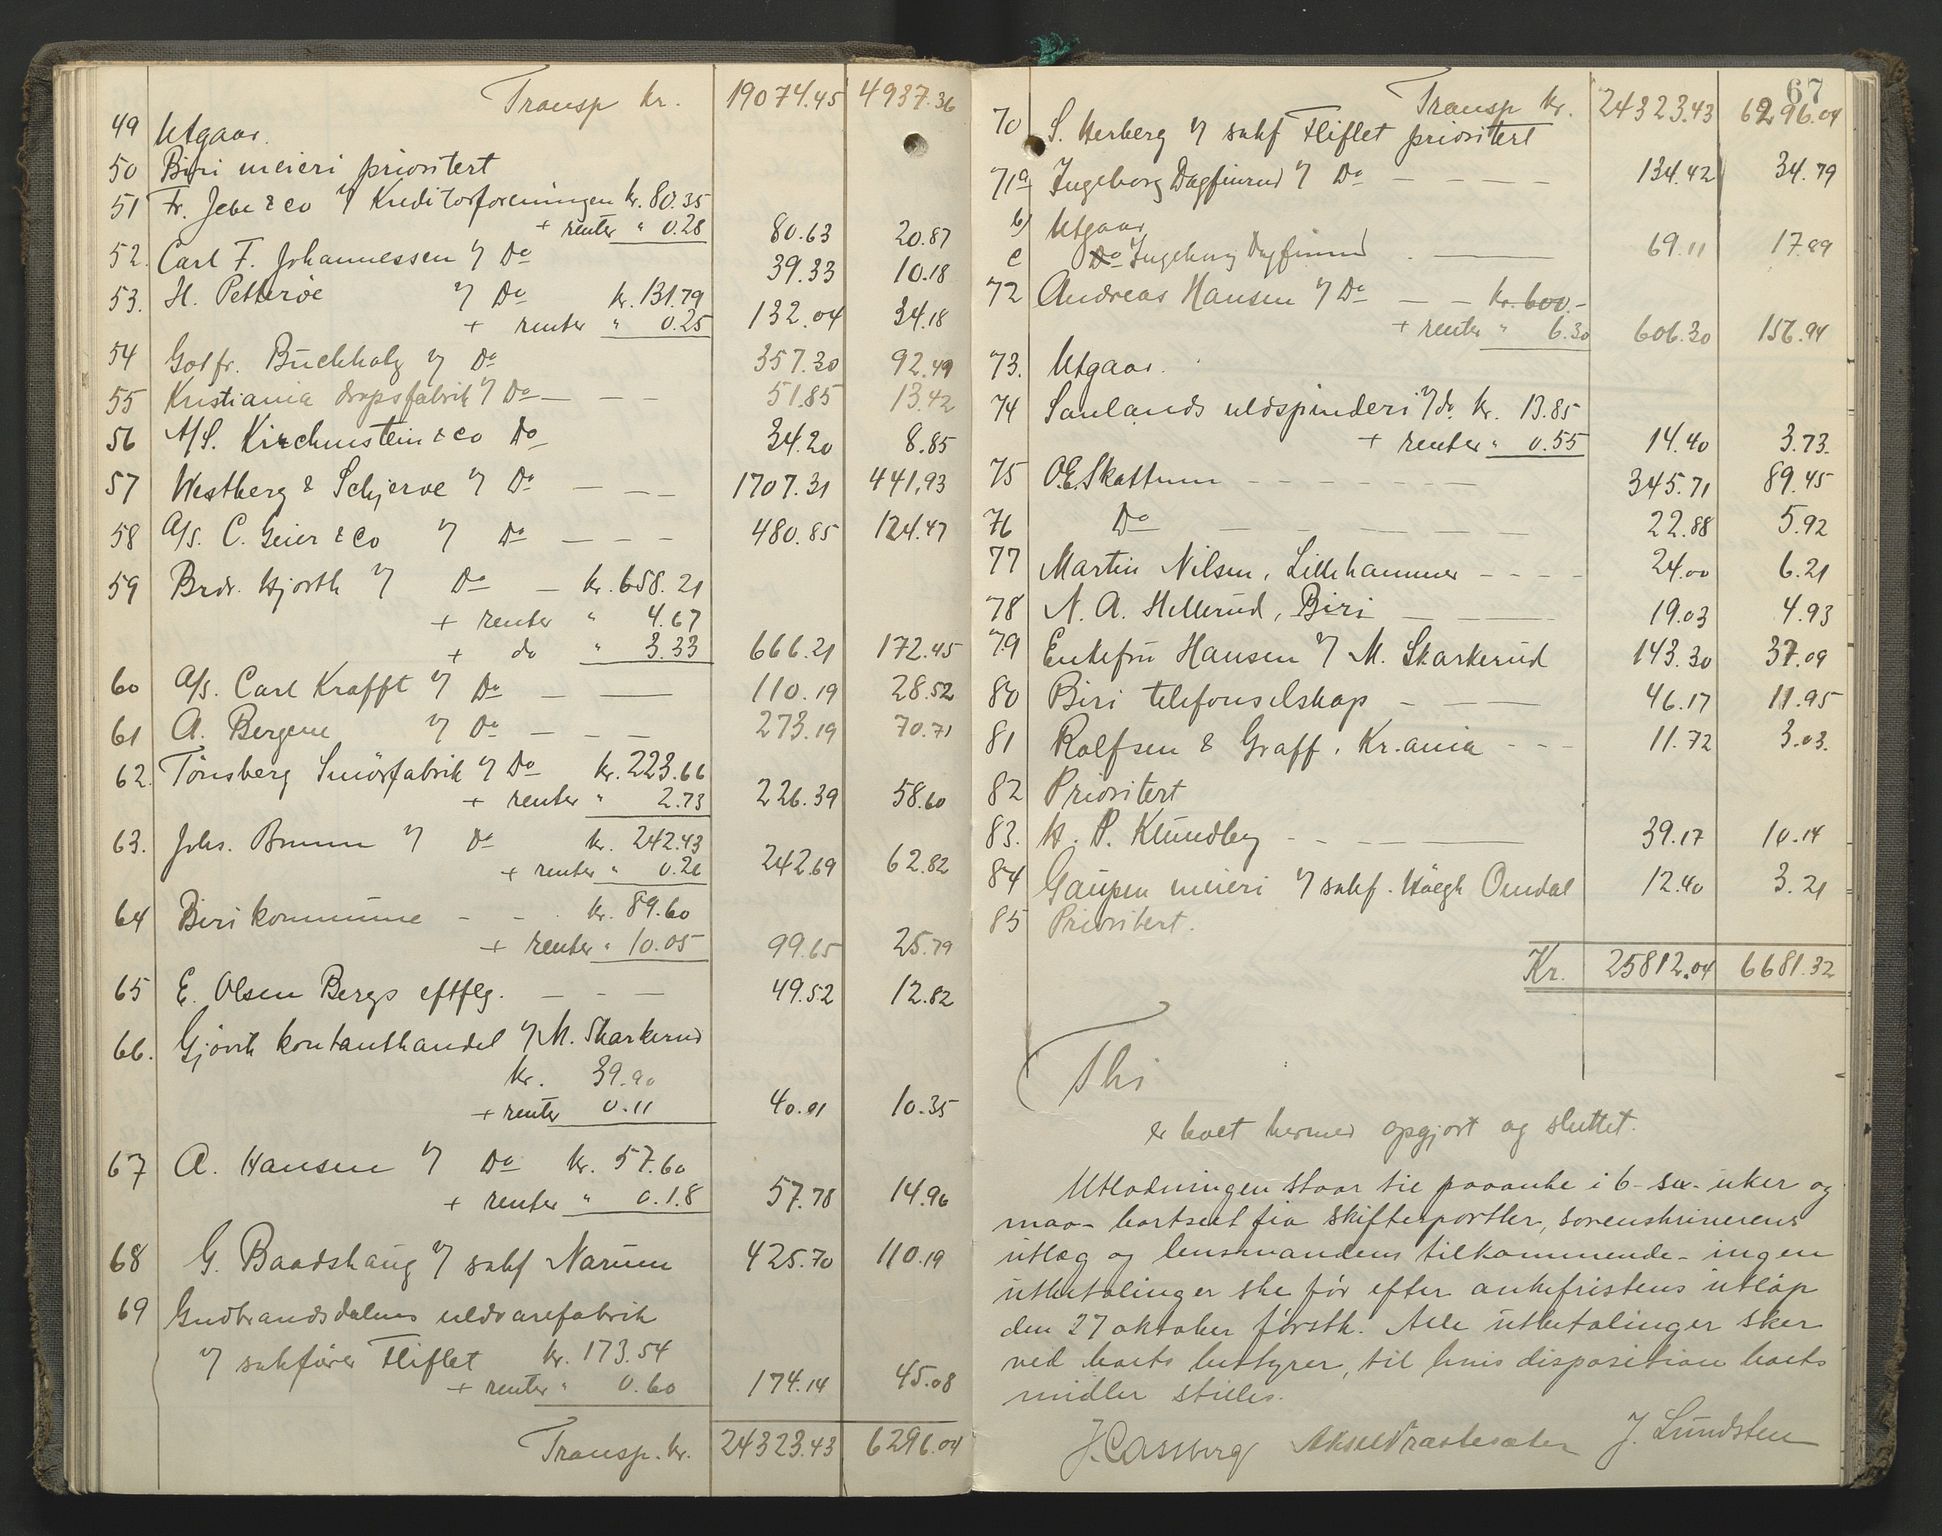 Transp kr. 19074.45 4937.36
49 Utgaar.
50 Biri meieri prioritert
51 Fr. Jebe & co v/ Kreditorforeningen kr. 80.35
+ renter " 0.28 80.63 20.87
52. Carl F. Johannessen v/ Do 39.33 10.18
53. H. Petterøe v/ Do kr. 131.79
+ renter " 0.25 132.04 34.18
54 Gotfr. Buchholz v/ Do 357.30 92.49
55 Kristiania dropsfabrik v/ Do — — — 51.85 13.42
56 A/S. Kirchmstein & co Do 34.20 8.85
57 Westberg & Schjerve v/ Do — — — 1707.31 441.93
58 A/s. C. Geier & Co v/ Do — — — 480.85 124.47
59 Brdr. Hjorth v/ Do — kr. 658.21
+ renter " 4.67
+ do " 3.33 666.21 172.45
60 A/s. Carl Krafft v/ Do — —— 110.19 28.52
61 A. Bergene v/ Do — — — 273.19 70.71
62. Tönsberg Smörfabrik v/ Do kr. 223.66
+ renter " 2.73 226.39 58.60
63. Johs. Brunn v/ Do kr. 242.43
+ renter " 0.26 242.69 62.82
64 Biri kommune - - kr. 89.60
+ renter " 10.05 99.65 25.79
65 E. Olsen Bergs eftflg. — - — 49.52 12.82
66. Gjövik kontanthandel v/ M. Skarkerud
kr. 39.90
+ renter 0.11 40.01 10.35
67 A. Hansen v/ Do kr. 57.60
+ renter " 0.18 57.78 14.96
68 G. Baadshaug v/ sakf Narum 425.70 110.19
69 Gudbrandsdalens uldvarefabrik
v/ sakfører Fliflet kr. 173.54
+ renter " 0.60 174.14 45.08
Transp. kr. 24323.43 6296.04
67
Transp kr. 24323.43 6296.04
70 S. Herberg v/ sakf Fliflet prioritert
71a Ingeborg Dagfinrud v/ Do — — — — 134.42 34.79
b) Utgaar
c Do Ingeborg Dagfinrud . —— 69.11 17.89
72 Andreas Hansen v/ Do — — kr. 600.-
+ renter " 6.30 606.30 156.94
73. Utgaar.
74 Saulands uldspinderi v/ do. kr. 13.85
+ renter " 0.55 14.40 3.73.
75 O.E. Skattum - - - - - - - 345.71 89.45
76 Do — — — — — 22.88 5.92
77 Martin Nilsen, Lillehammer - - - - 24.00 6.21
78 N. A. Hellerud, Biri — — —— 19.03 4.93
79 Enkefru Hansen v/ M. Skarkerud 143.30 37.09
80 Biri telefonselskap - — —— 46.17 11.95
81 Rolfsen & Graff, Kr.ania - - - 11.72 3.03.
82 Prioritert
83. H. P. Klundby - - - —— 39.17 10.14
84 Gaupen meieri v/ sakf. Høegh Omdal 12.40 3.21
85 Prioritert.
Kr. 25812.04 6681.32
Thi
er boet hermed opgjort og sluttet.
Utlodningen staar til paaanke i 6-sex- uker og
maa- bortseet fra skifteportler, sorenskriverens
utlæg og lensmandens tilkommende- ingen
utbetalinger ske før efter ankefristens utløp
den 27 oktober førstk. Alle utbetalinger sker
ved boets bestyrer, til hvis disposition boets
midler stilles.
J. Lundsten